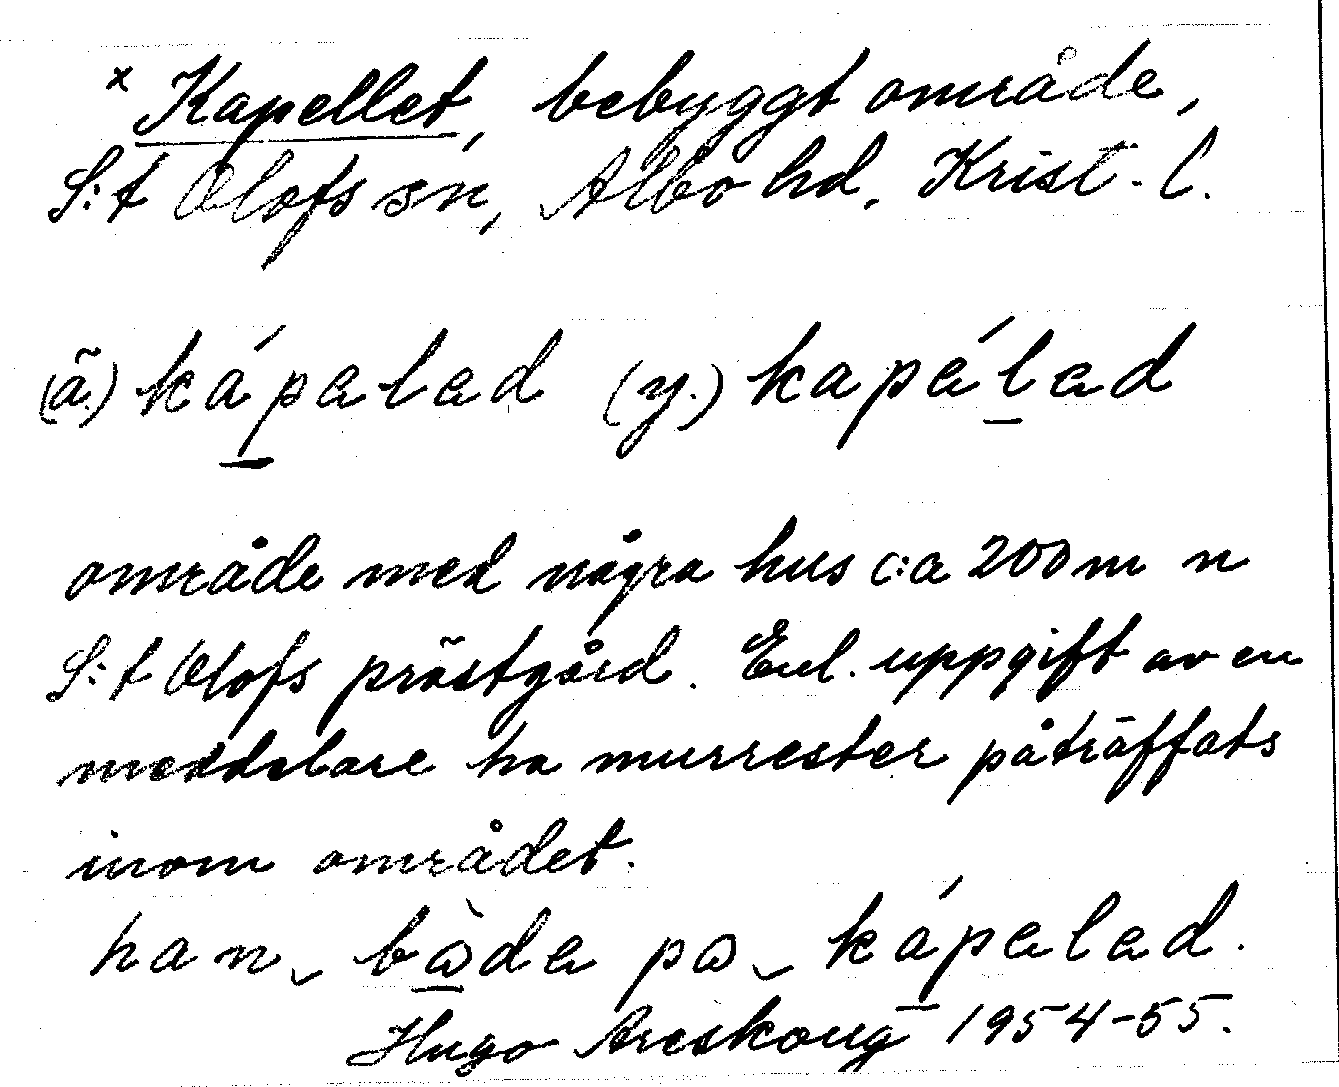 x Kapellet, bebyggt område,
S:t Olofs sn, Albo hd, Krist. l.
(ä.) ká̱palad (y.) kapáḻad
område med några hus c:a 200 m n
S:t Olofs prästgård. Enl. uppgift av en
meddelare ha murrester påträffats
inom området.
han bò̱da pɷ ká̱palad.
Hugo Areskoug 1954-55.